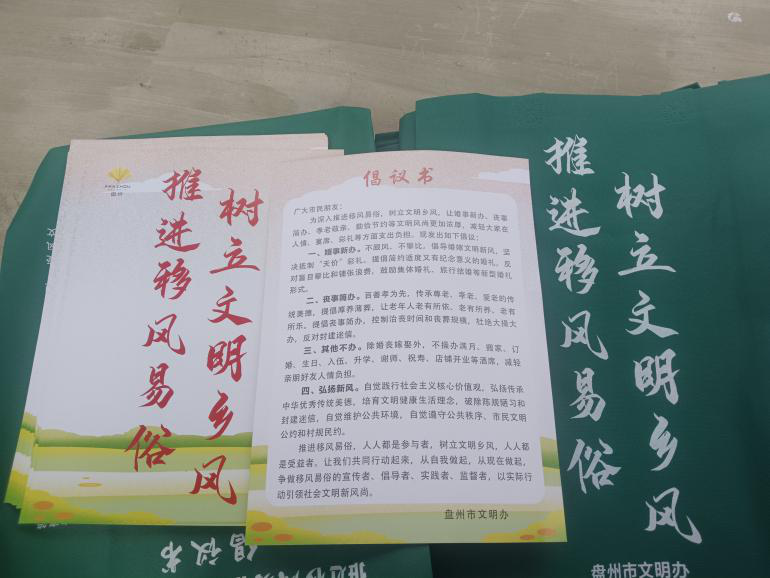 PANZHOU
盘州
推进移风易俗
树立文明乡风
倡议书
广大市民朋友：
为深入推进移风易俗，树立文明乡风，让婚事新办、丧事
简办、孝老敬亲、勤俭节约等文明风尚更加浓厚，减轻大家在
人情、宴席、彩礼等方面支出负担，现发出如下倡议：
一、婚事新办。不跟风、不攀比，倡导婚嫁文明新风，坚
决抵制“天价”彩礼，提倡简约适度又有纪念意义的婚礼，反
对盲目攀比和铺张浪费，鼓励集体婚礼、旅行结婚等新型婚礼
形式。
二、丧事简办。百善孝为先，传承尊老、孝老、爱老的传
统美德，提倡厚养薄葬，让老年人老有所依、老有所养、老有
所乐。提倡丧事简办，控制治丧时间和丧葬规模，杜绝大操大
办，反对封建迷信。
三、其他不办。除婚丧嫁娶外，不操办满月、搬家、订
婚、生日、入伍、升学、谢师、祝寿、店铺开业等酒席，减轻
亲朋好友人情负担。
四、弘扬新风。自觉践行社会主义核心价值观，弘扬传承
中华优秀传统美德，培育文明健康生活理念，破除陈规陋习和
封建迷信，自觉维护公共环境，自觉遵守公共秩序、市民文明
公约和村规民约。
推进移风易俗，人人都是参与者，树立文明乡风，人人都
是受益者。让我们共同行动起来，从自我做起，从现在做起，
争做移风易俗的宣传者、倡导者、实践者、监督者，以实际行
动引领社会文明新风尚。
盘州市文明办
推进移风易俗
树立文明乡风
盘州市文明办
倡议书